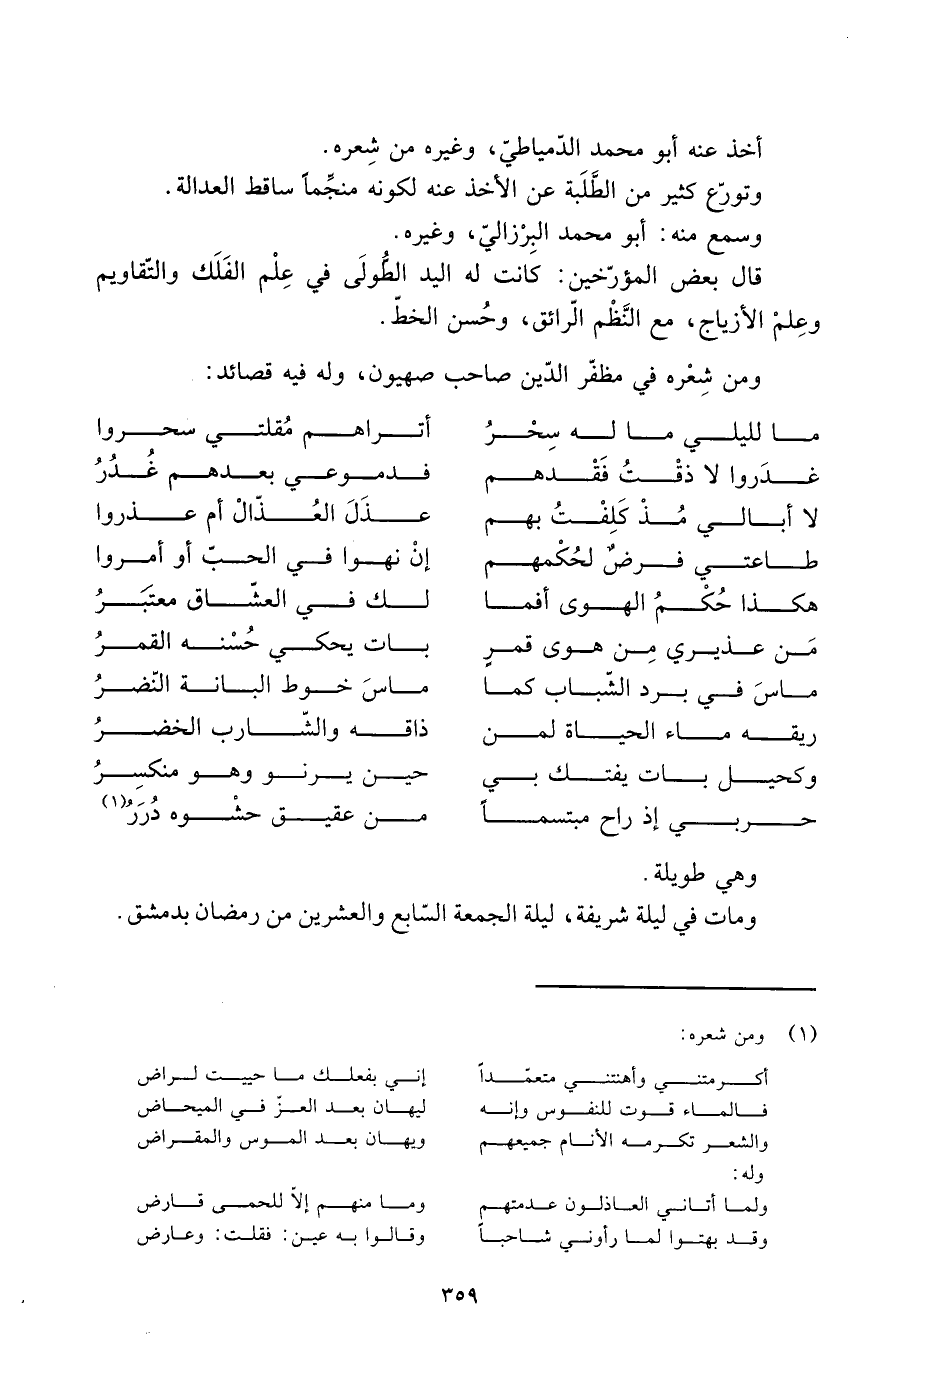 أخذ عنه أبو محمد الدّمياطيّ، وغيره من شِعره.
وتورّع كثير من الطَّلَبة عن الأخذ عنه لكونه منجِّماً ساقط العدالة.
وسمع منه: أبو محمد البِرْزاليّ، وغيره.
قال بعض المؤرّخين: كانت له اليد الطُّولَى في عِلْم الفَلَك والتّقاويم
وعِلمْ الأزياج، مع النَّظْم الرّائق، وحُسن الخطّ.
ومن شِعْره في مظفّر الدّين صاحب صهيون، وله فيه قصائد:
ما لليلي ما له سِحْرُ أتراهم مُقلتي سحروا
غدَروا لا ذقْتُ فَقْدهم فدموعي بعدهم غُدُرُ
لا أبالي مُذْ كَلِفْتُ بهم عذَلَ العُذّالْ أم عذروا
طاعتي فرضٌ لحُكْمهم إنْ نهوا في الحبّ أو أمروا
هكذا حُكْمُ الهوى أفما لك في العشّاق معتَبَرُ
مَن عذيري مِن هوى قمرٍ بات يحكي حُسْنه القمرُ
ماسَ في برد الشّباب كما ماسَ خوط البانة النّضرُ
ريقه ماء الحياة لمن ذاقه والشّارب الخضرُ
وكحيل بات يفتك بي حين يرنو وهو منكسِرُ
حربي إذ راح مبتسماً من عقيق حشْوه دُرَرُ(١)
وهي طويلة.
ومات في ليلة شريفة، ليلة الجمعة السّابع والعشرين من رمضان بدمشق.
(١) ومن شعره:
أكرمتني وأهنتني متعمّداً إني بفعلك ما حييت لراض
فالماء قوت للنفوس وإنه ليهان بعد العزّ في الميحاض
والشعر تكرمه الأنام جميعهم ويهان بعد الموس والمقراض
وله:
ولما أتاني العاذلون عدمتهم وما منهم إلاّ للحمى قارض
وقد بهتوا لما رأوني شاحباً وقالوا به عين: فقلت: وعارض
٣٥٩